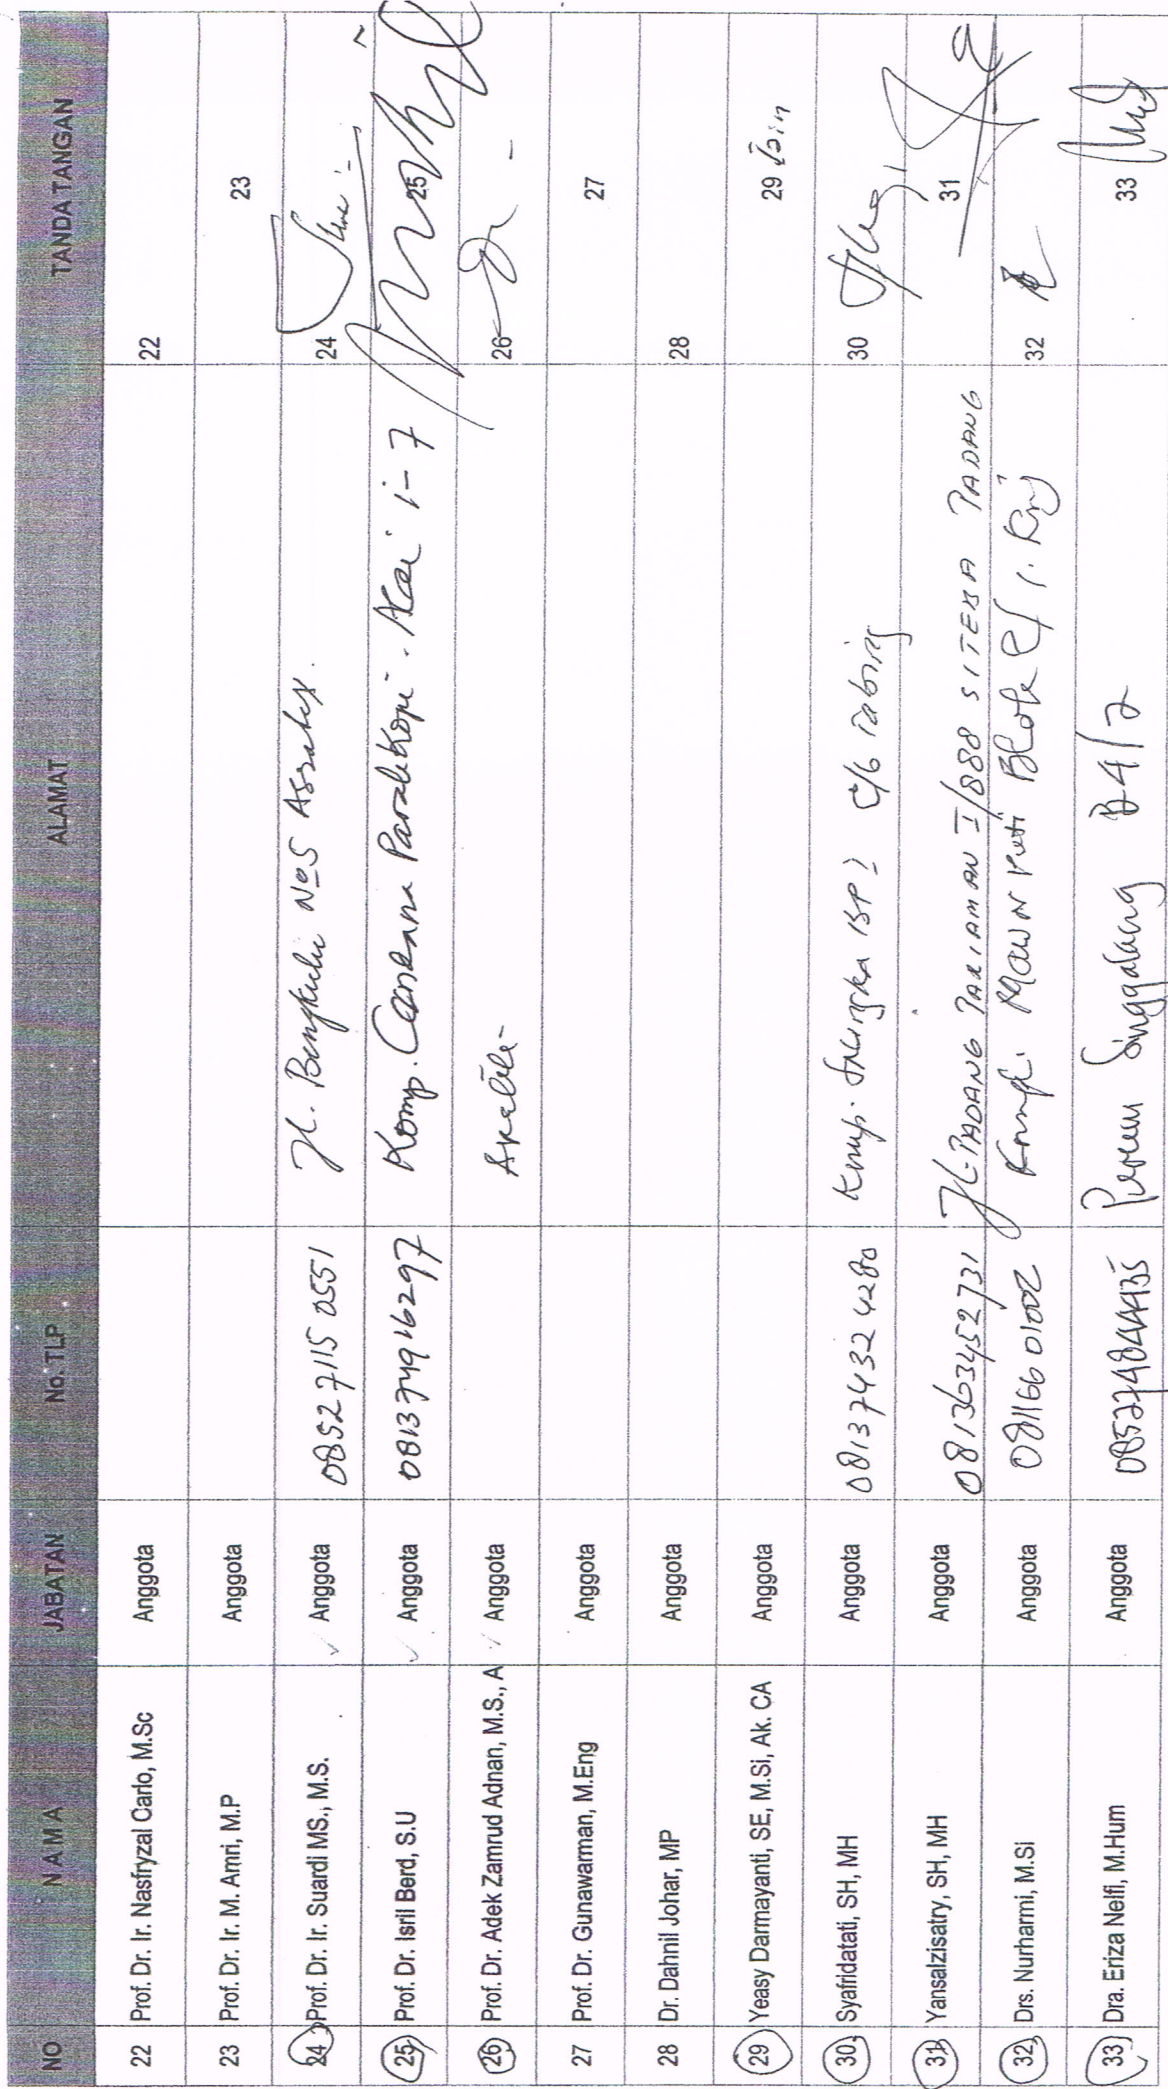 NO N A M A JABATAN No. TLP ALAMAT TANDA TANGAN
22 Prof. Dr. Ir. Nasfryzal Carlo, M.Sc Anggota 22
23 Prof. Dr. Ir. M. Amri, M.P Anggota 23
24 Prof. Dr. Ir. Suardi MS., M.S. Anggota 0852 7115 0551 Jl. Bengkulu No 5 24
25 Prof. Dr. Isril Berd, S.U Anggota 081374916297 Komp. Cendana Parak Kopi - Alai i-7 25
26 Prof. Dr. Adek Zamrud Adnan, M.S., A Anggota 26
27 Prof. Dr. Gunawarman, M.Eng Anggota 27
28 Dr. Dahnil Johar, MP Anggota 28
29 Yeasy Darmayanti, SE, M.Si, Ak. CA Anggota 29 Izin
30 Syafridatati, SH, MH Anggota 08137432 4280 Komp. Salingka C/6 Tabing 30
31 Yansalzisatry, SH, MH Anggota 081363452731 JL. PADANG PARIAMAN I/888 SITEBA PADANG 31
32 Drs. Nurharmi, M.Si Anggota 0811660 1002 Komp. Mawar Putih Blok 32
33 Dra. Eriza Nelfi, M.Hum Anggota 085274844435 Perum Singgalang B4/2 33